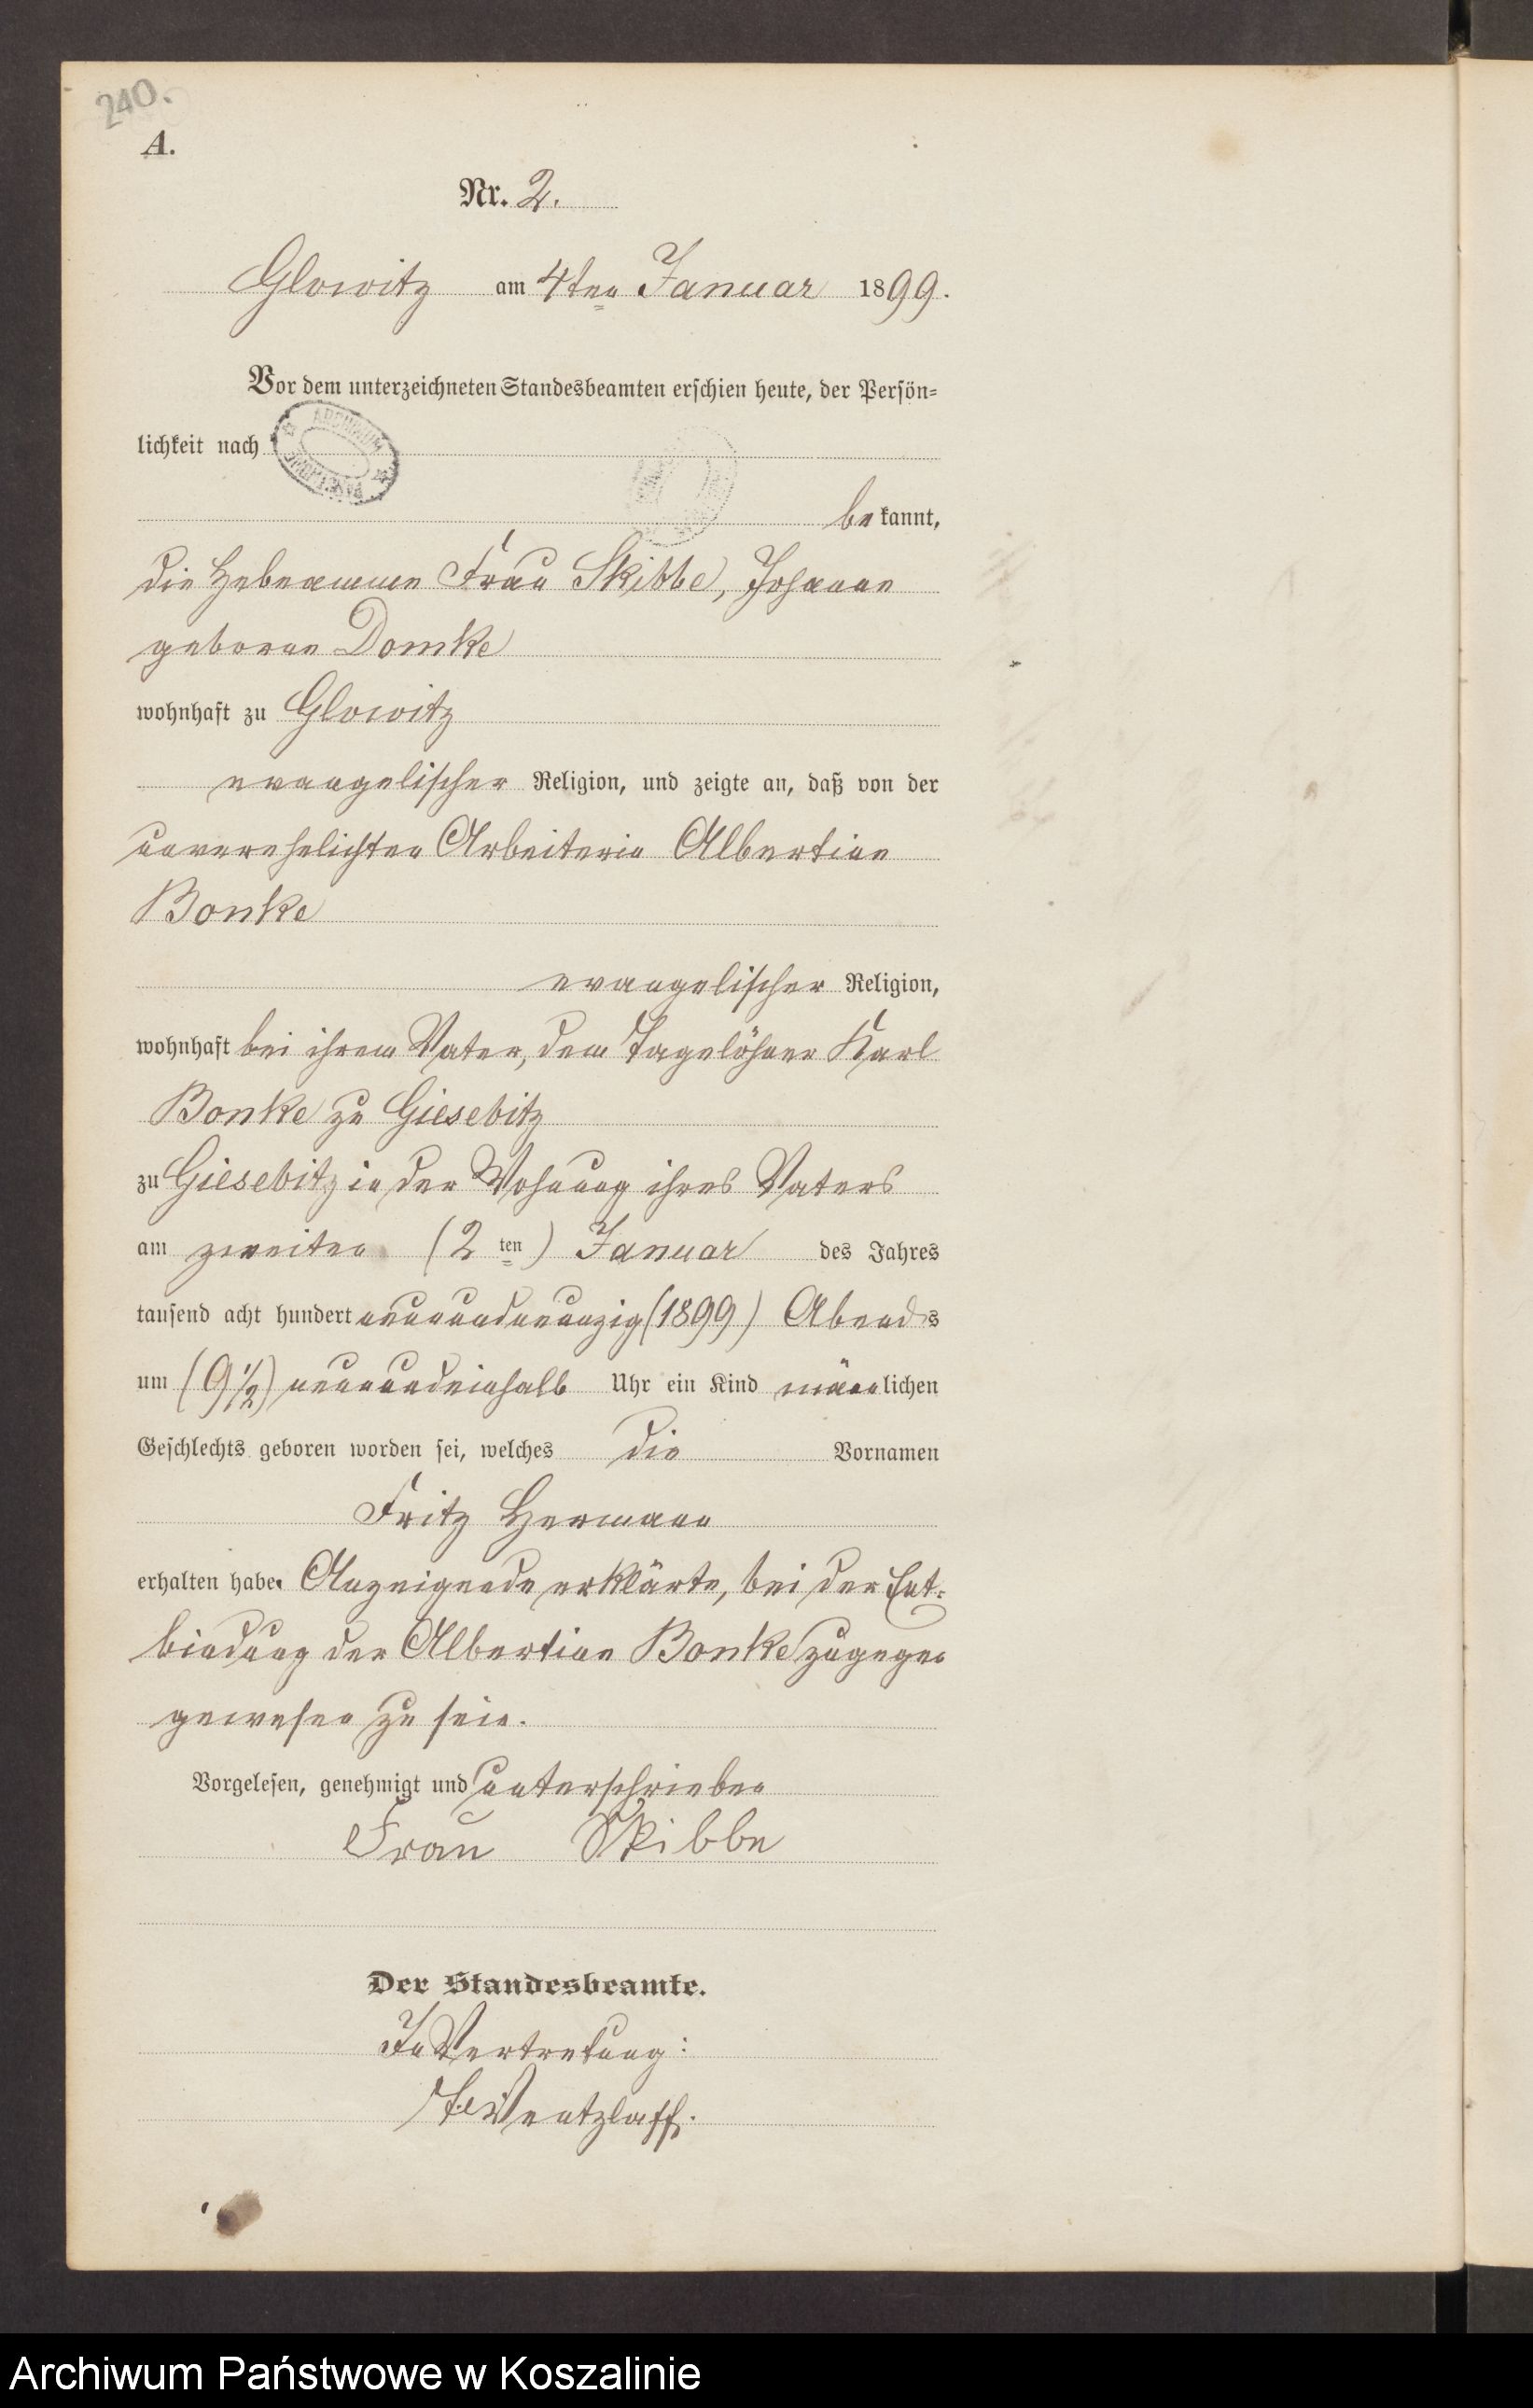 240.
A.
Nr. 2.
Glowitz am 4ten Januar 1899.
Vor dem unterzeichneten Standesbeamten erschien heute, der Persön-
lichkeit nach
ARCHIWUM
be kannt,
die Hebeamme Frau Skibbe, Johanne
geborne Domke
wohnhaft zu Glowitz
evangelischer Religion, und zeigte an, daß von der
unverehelichten Arbeiterin Albertine
Bonke
evangelischer Religion,
wohnhaft bei ihrem Vater, dem Tagelöhner Karl
Bonke zu Giesebitz
zu Giesebitz in der Wohnung ihres Vaters
am zweiten (2 ten) Januar des Jahres
tausend acht hundert neunundneunzig (1899) Abends
um (9 1/2) neunundeinhalb Uhr ein Kind männlichen
Geschlechts geboren worden sei, welches die Vornamen
Fritz Hermann
erhalten habe. Anzeigende erklärte, bei der Ent-
bindung der Albertine Bonke zugegen
gewesen zu sein.
Vorgelesen, genehmigt und unterschrieben
Frau Skibbe
Der Standesbeamte.
In Vertretung:
Wentzlaff.
Archiwum Państwowe w Koszalinie